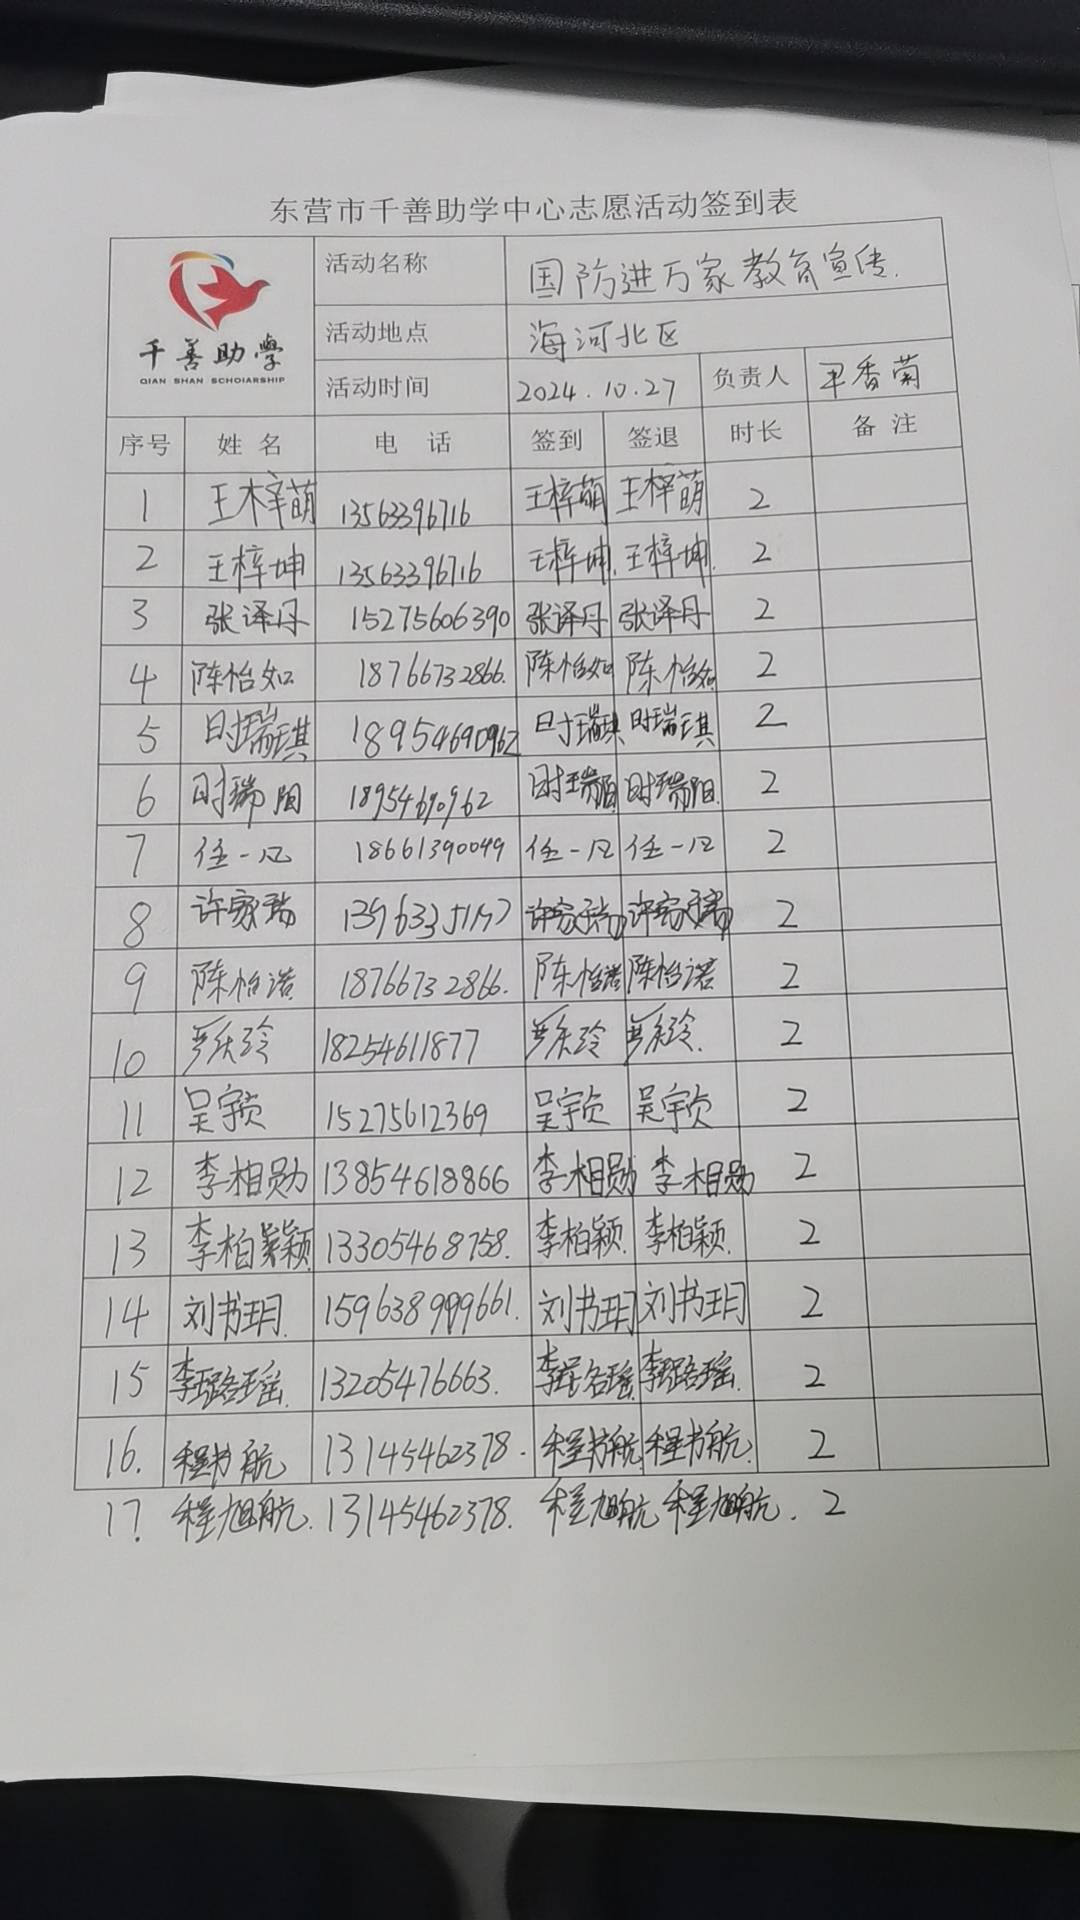 东营市千善助学中心志愿活动签到表
千善助学
QIAN SHAN SCHOIARSHIP
活动名称 国防进万家教育宣传.
活动地点 海河北区
活动时间 2024.10.27 负责人 香菊
序号 姓名 电话 签到 签退 时长 备注
1 王梓萌 13563396716 王梓萌 王梓萌 2
2 王梓坤 13563396716 王梓坤. 王梓坤. 2
3 张译丹 15275606390 张译丹 张译丹 2
4 陈怡如 18766732866. 陈怡如 陈怡如 2
5 时瑞琪 18954690962 时瑞琪 时瑞琪 2
6 时瑞阳 18954690962 时瑞阳 时瑞阳. 2
7 任一凡 18661390049 任一凡 任一凡 2
8 许家瑞 许家瑞 许家瑞 2
9 陈怡诺. 18766732866. 陈怡诺 陈怡诺 2
10 18254611877 2
11 吴宇贞 15275612369 吴宇贞 吴宇贞 2
12 李相勋 13854618866 李相勋 李相勋 2
13 李柏颖 13305468758. 李柏颖. 李柏颖. 2
14 刘书玥. 刘书玥 刘书玥 2
15 李璐瑶 13205476663. 李璐瑶. 李璐瑶. 2
16. 程书航 13145462378. 程书航 程书航. 2
17. 程旭航. 13145462378. 程旭航 程旭航. 2